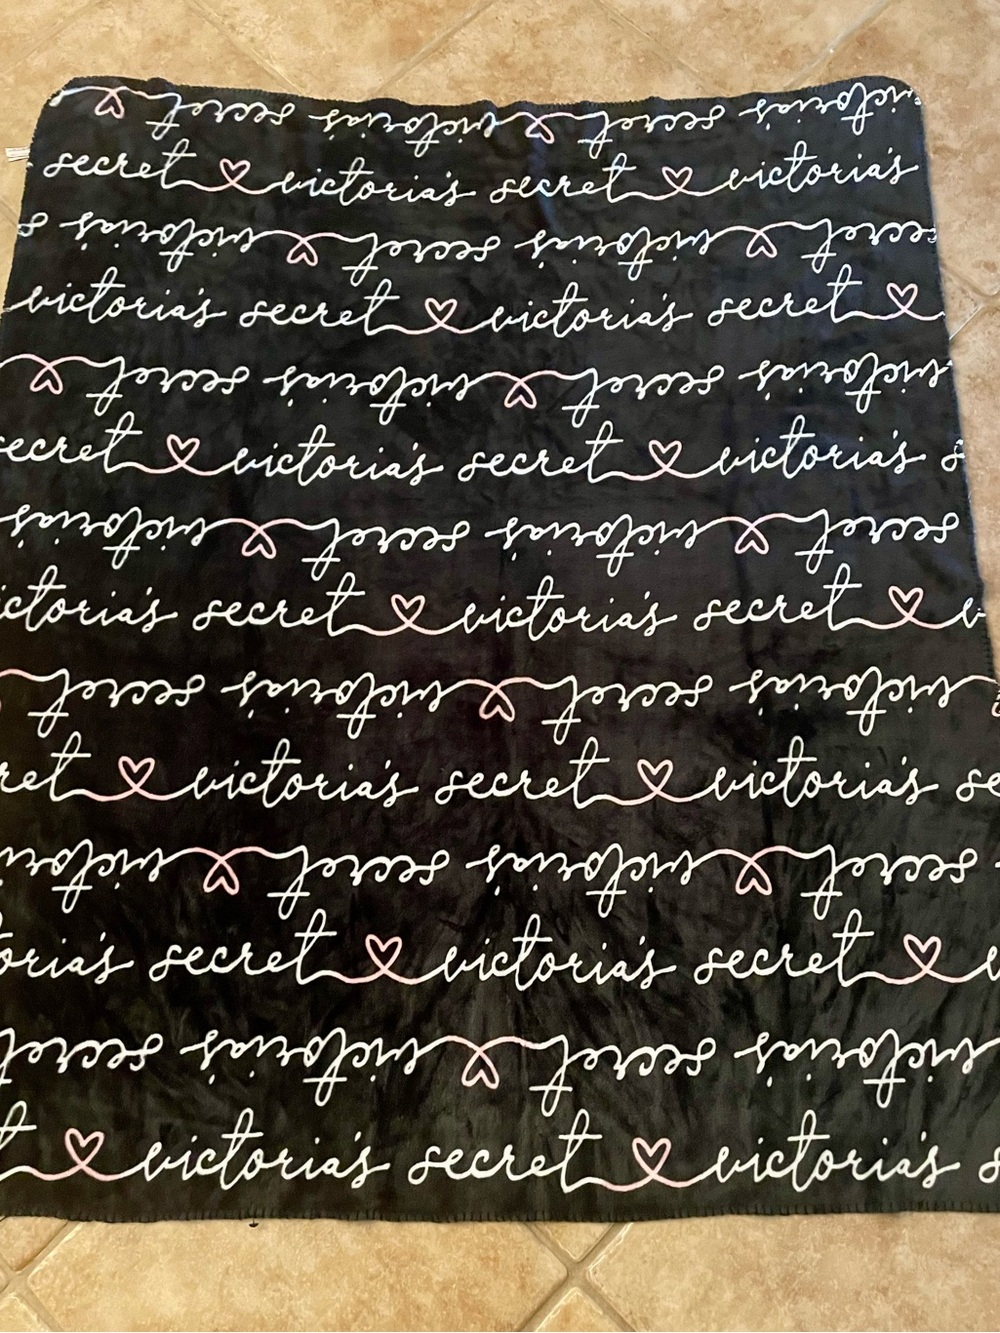 victoria's secret ♡ victoria's secret ♡
secret ♡ victoria's secret ♡ victoria's
secret ♡ victoria's secret ♡ victoria's s
victoria's secret ♡ victoria's secret ♡
victoria's secret ♡ victoria's secret ♡
ecret ♡ victoria's secret ♡ victoria's s
secret ♡ victoria's secret ♡ victoria's
ictoria's secret ♡ victoria's secret ♡ v
♡ victoria's secret ♡ victoria's secret
ret ♡ victoria's secret ♡ victoria's se
secret ♡ victoria's secret ♡ victori
oria's secret ♡ victoria's secret ♡ v
victoria's secret ♡ victoria's secret
t ♡ victoria's secret ♡ victoria's s